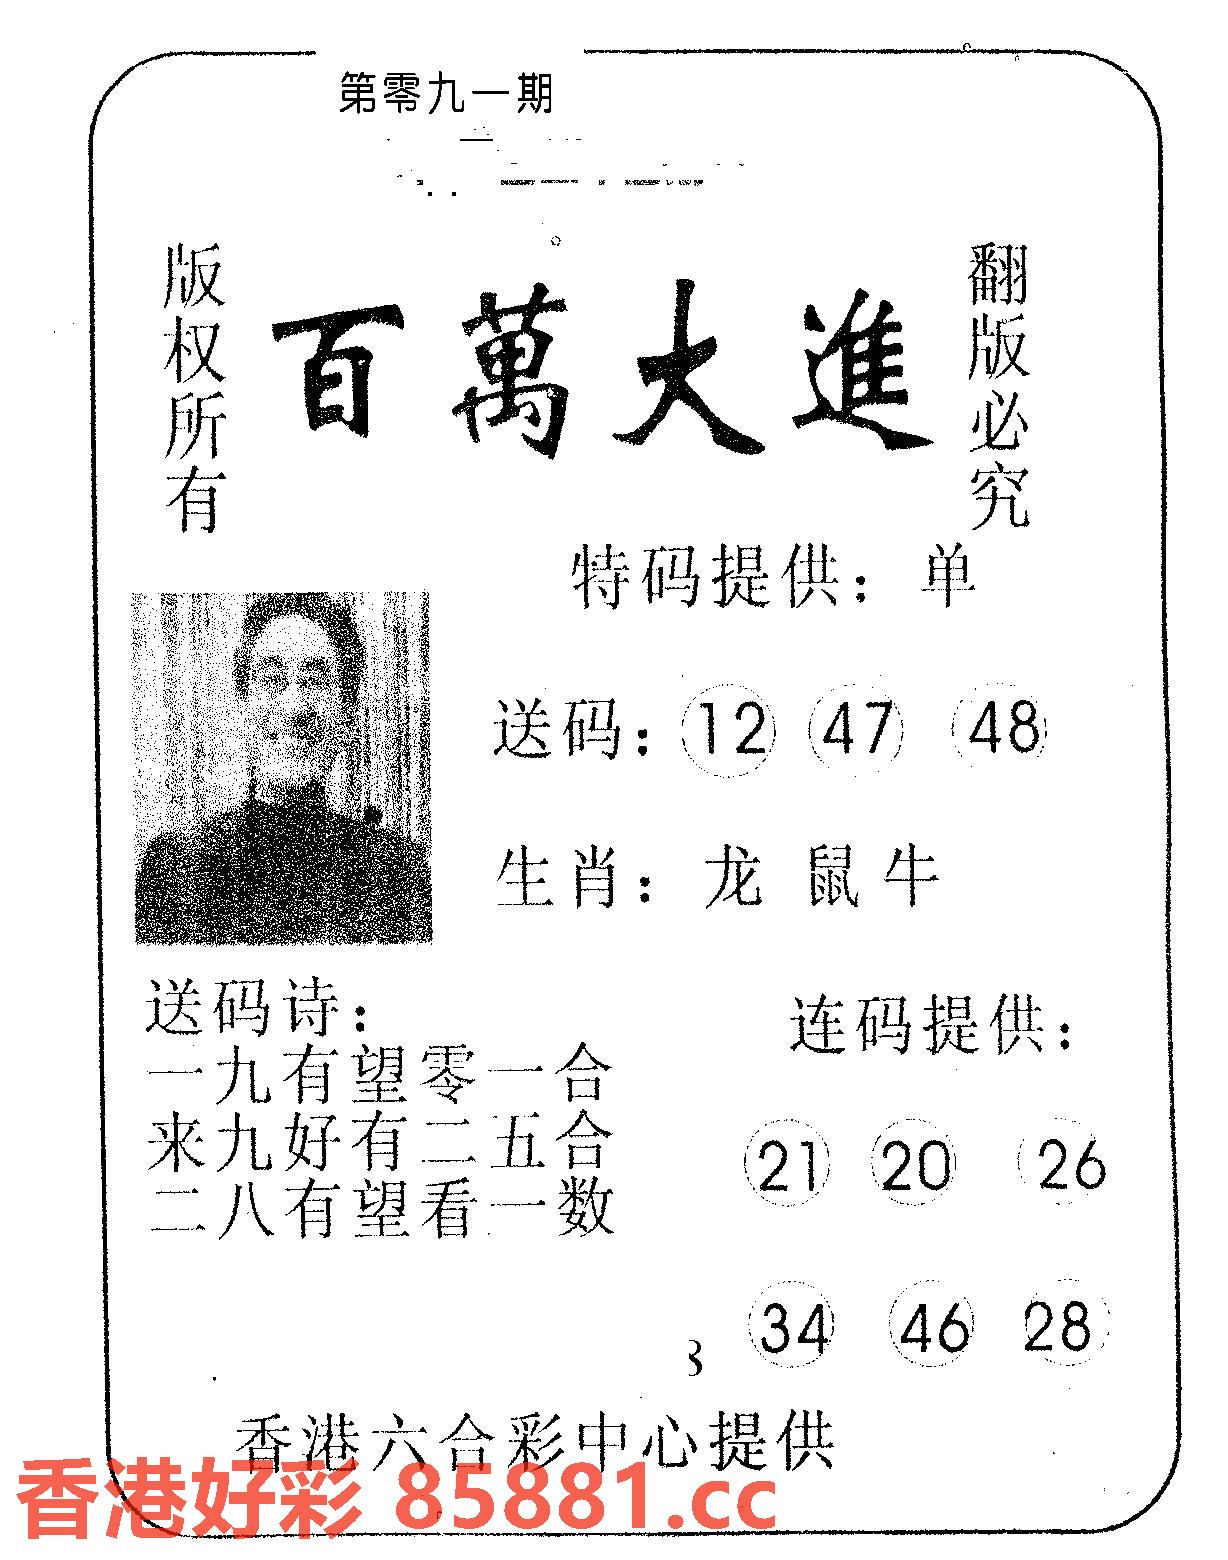 第零九一期
版权所有
百萬大進
翻版必究
特码提供：单
送码：12 47 48
生肖：龙 鼠 牛
送码诗：
一九有望零一合
来九好有二五合
二八有望看一数
连码提供：
21 20 26
34 46 28
香港六合彩中心提供
香港好彩 85881.cc